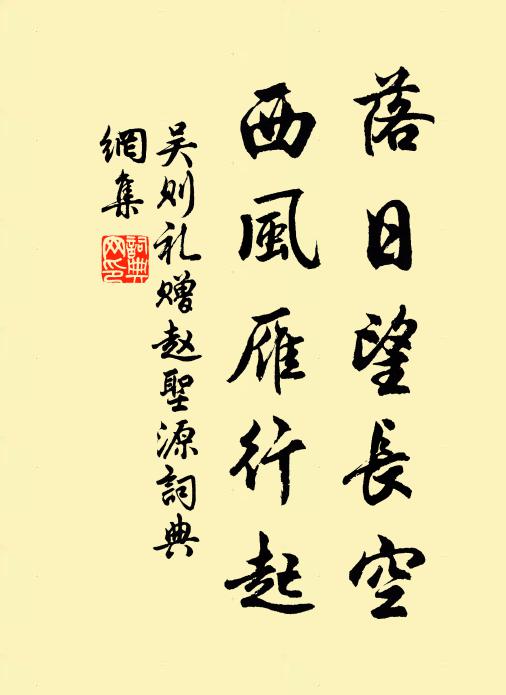 落日望長空
西風雁行起
吴则礼赠赵聖源詞典
網集
詞典
网印